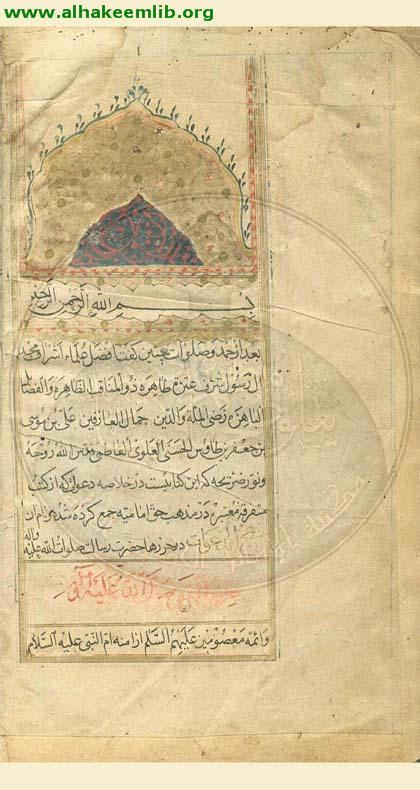 www.alhakeemlib.org
بسم الله الرحمن الرحیم
بعد از حمد و صلوات چنین گفت افضل علماء اشراف محمد
ال رسول شرف عترة طاهره ذو المناقب الظاهرة والفضائل
الباهرة رضی الملة والدین جمال العارفین علی بن موسی
بن جعفر بن طاوس الحسنی العلوی الفاطمی الله روحه
و نور ضریحه که این کتابیست در خلاصه دعواتی که از کتب
متفرقه معتبره در مذهب حق امامیه جمع کرده شد بنام ان
دعوات در حرزها حضرت رسالت صلوات الله علیه واله
صلی الله علیه واله
وائمه معصومین علیهم السلام از امنه ام النبی علیه السلام